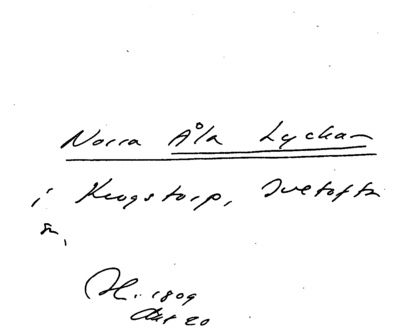 Norra Åla Lyckan
i Krogstorp, Ivetofta
sn,
H. 1809
Akt 20